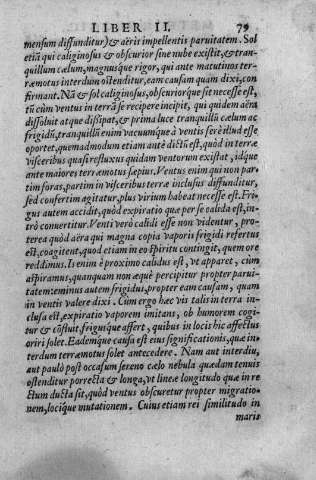 LIBER II. 79
mensum diffunditur) & aëris impellentis paruitatem. Sol
etiã qui caliginosus & obscurior sine nube existit, & tran-
quillum cælum, magnusque rigor, qui ante matutinos ter-
ræmotus interdum ostenditur, eam causam quam dixi, con
firmant. Nã & sol caliginosus, obscuriorque sit necesse est,
tũ cùm ventus in terrã se recipere incipit, qui quidem aëra
dissoluit atque dissipat, & prima luce tranquillũ cælum ac
frigidũ, tranquillũ enim vacuumque à ventis ferè illud esse
oportet, quemadmodum etiam antè dictũ est, quòd in terræ
visceribus quasi refluxus quidam ventorum existat, idque
ante maiores terræmotus sæpius. Ventus enim qui non par-
tim foras, partim in visceribus terræ inclusus diffunditur,
sed confertim agitatur, plus virium habeat necesse est. Fri-
gus autem accidit, quòd expiratio quæ per se calida est, in-
trò conuertitur. Venti verò calidi esse non videntur, pro-
terea quòd aëra qui magna copia vaporis frigidi refertus
est, coagitent, quod etiam in eo spiritu contingit, quem ore
reddimus. Is enim è proximo calidus est, vt apparet, cùm
aspiramus, quanquam non æquè percipitur propter parui-
tatem: eminus autem frigidus, propter eam causam, quam
in ventis valere dixi. Cùm ergo hæc vis talis in terra in-
clusa est, expiratio vaporem imitans, ob humorem cogi-
tur & cõfluit, frigusque affert, quibus in locis hic affectus
oriri solet. Eademque causa est eius significationis, quæ in-
terdum terræmotus solet antecedere. Nam aut interdiu,
aut paulò post occasum sereno cælo nebula quædam tenuis
ostenditur porrecta & longa, vt lineæ longitudo quæ in re
ctum ducta sit, quòd ventus obscuretur propter migratio-
nem, locique mutationem. Cuius etiam rei similitudo in
maris